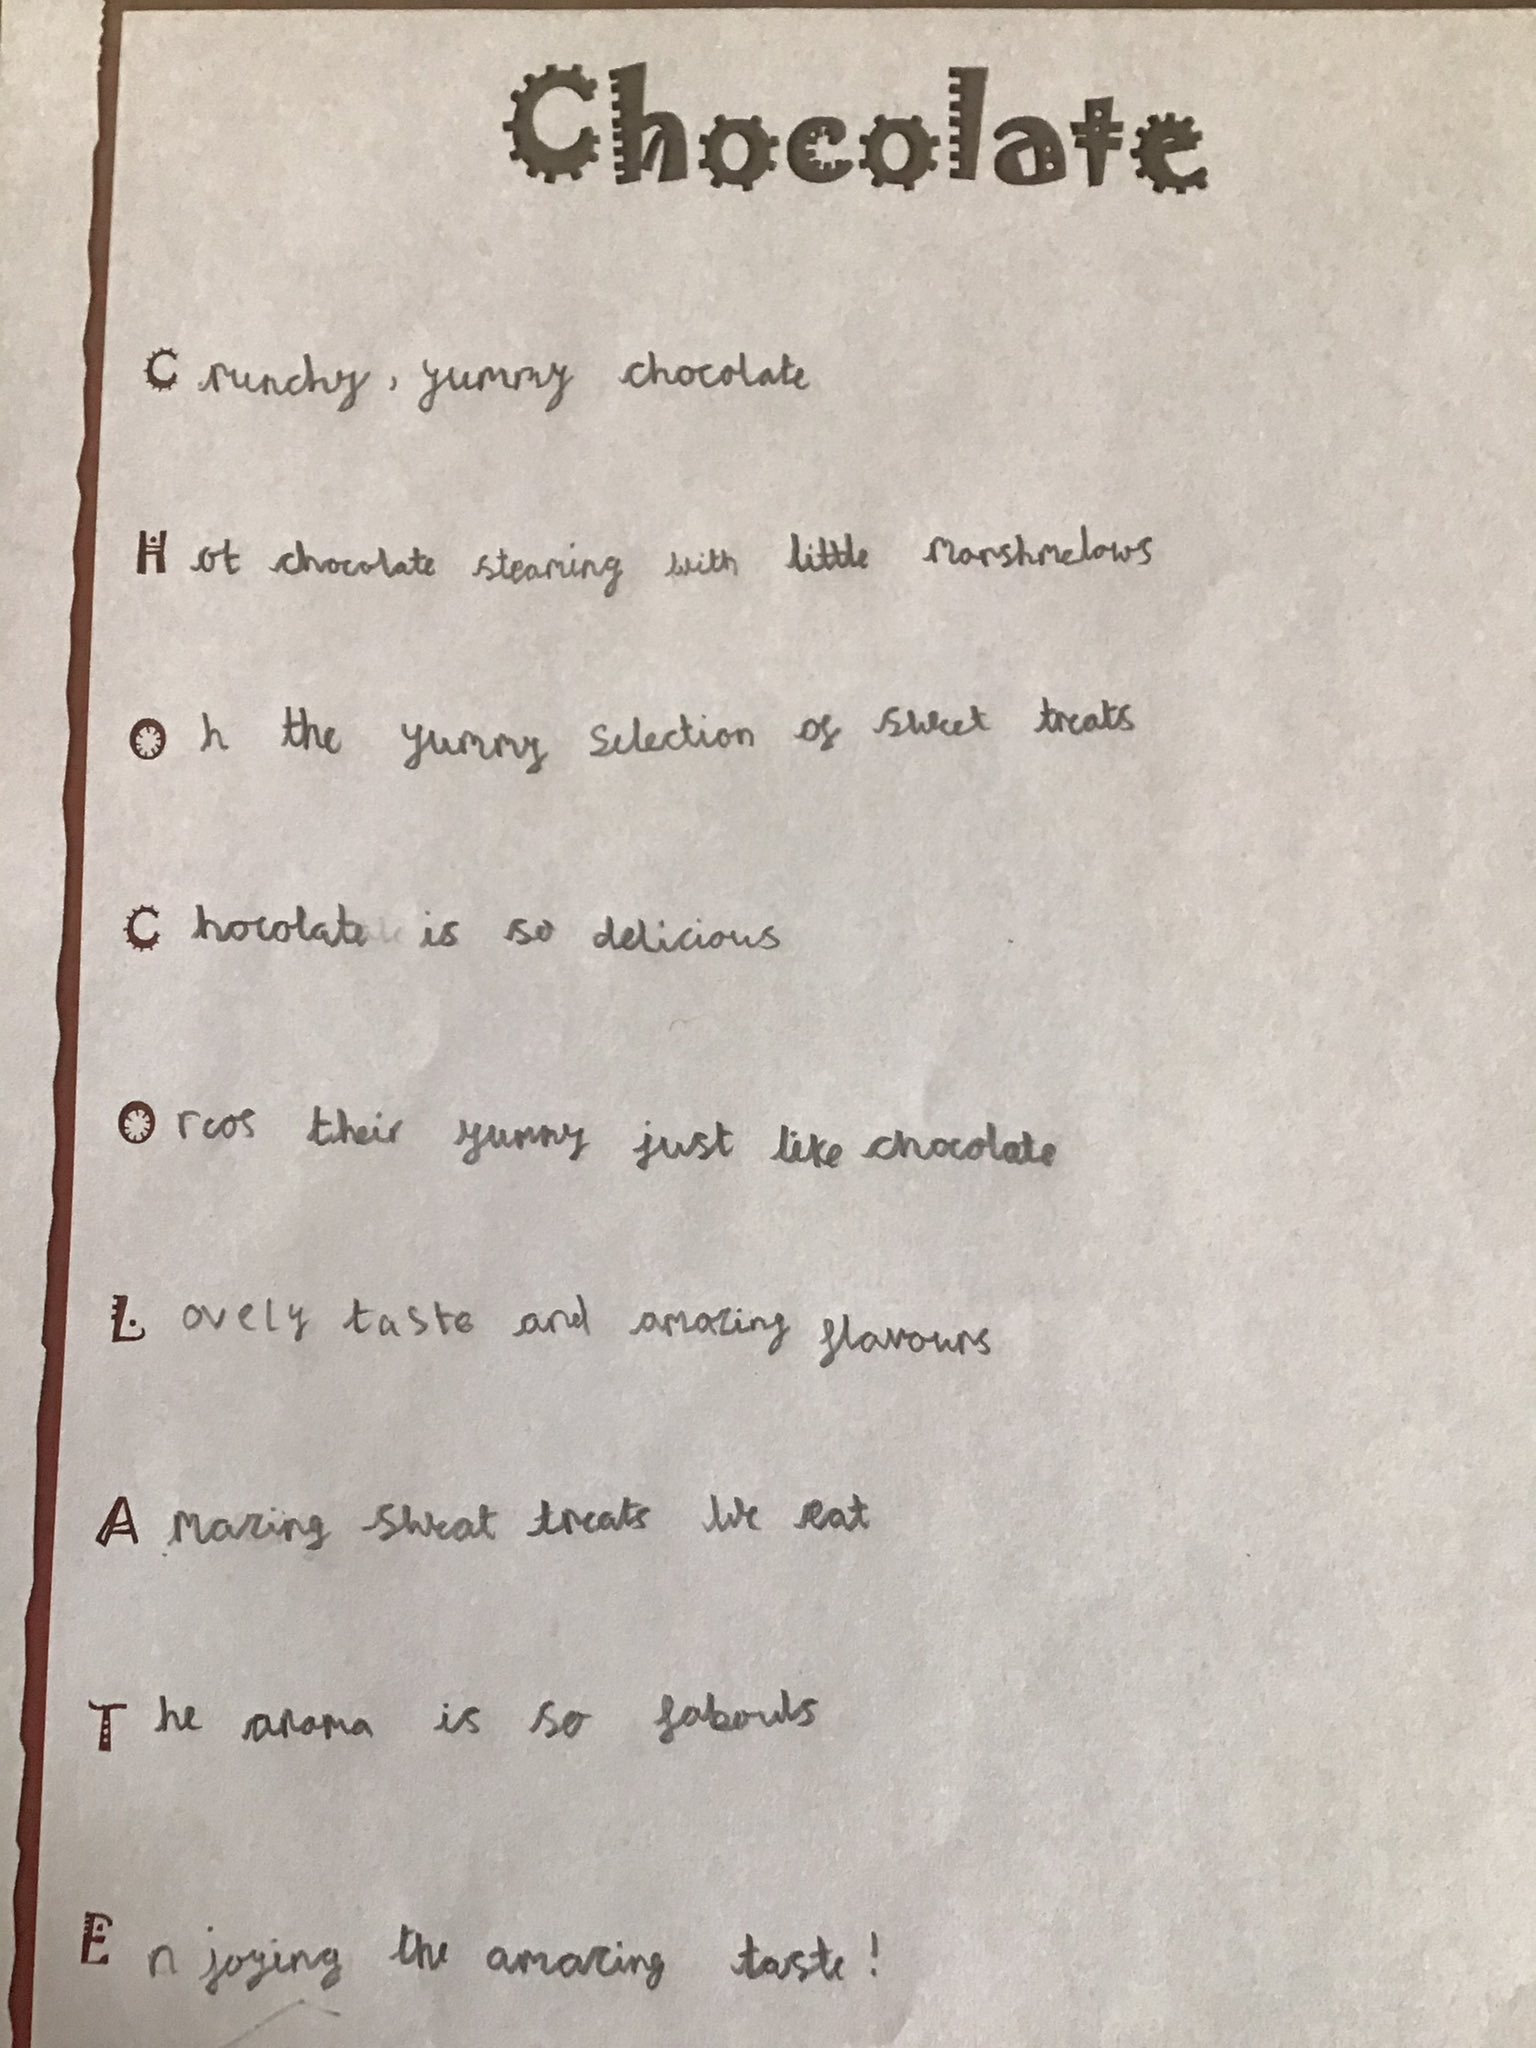 Chocolate
Crunchy, yummy chocolate
Hot chocolate steaming with little marshmelows
Oh the yummy selection of sweet treats
Chocolate is so delicious
Oreos their yummy just like chocolate
Lovely taste and amazing flavours
Amazing sweat treats we eat
The aroma is so fabouls
Enjoying the amazing taste!